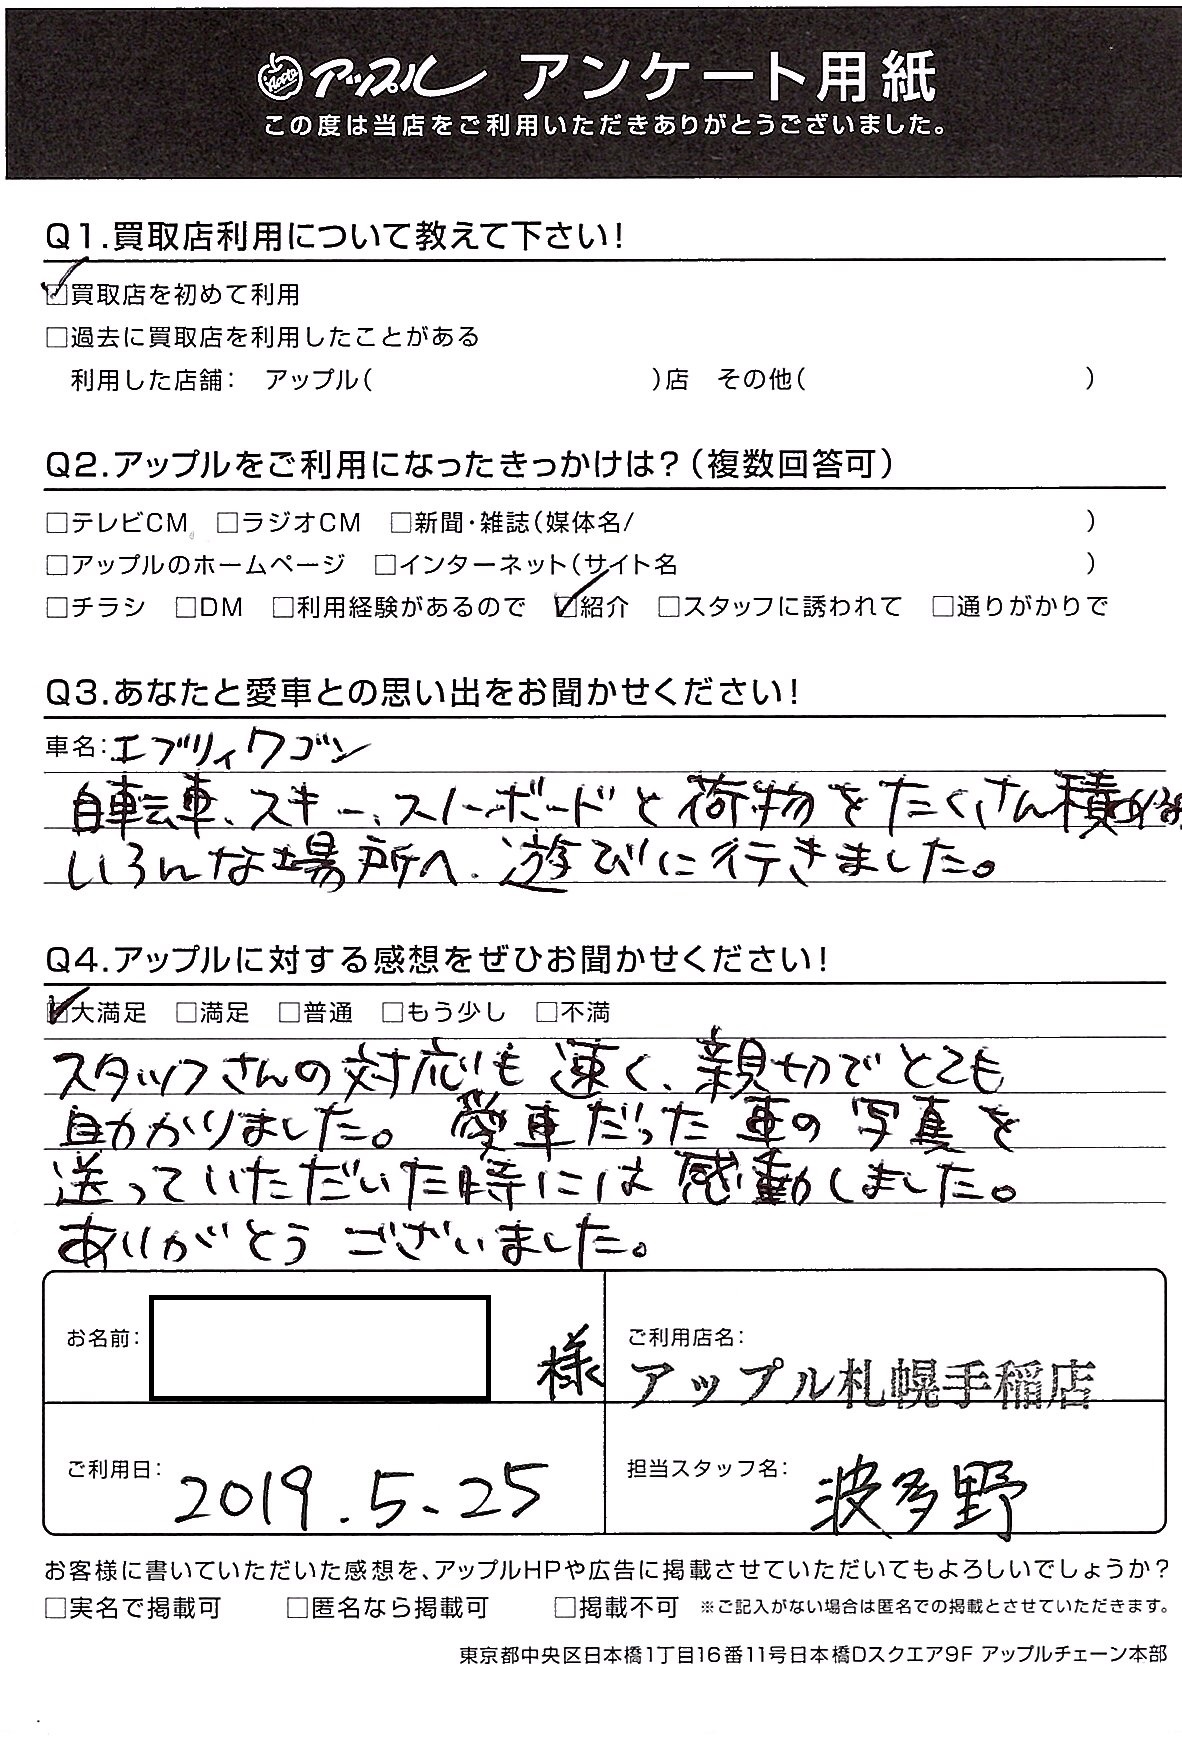 Apple アップル アンケート用紙
この度は当店をご利用いただきありがとうございました。
Q1.買取店利用について教えて下さい！
☑買取店を初めて利用
□過去に買取店を利用したことがある
利用した店舗： アップル（ ）店 その他（ ）
Q2.アップルをご利用になったきっかけは？（複数回答可）
□テレビCM □ラジオCM □新聞・雑誌（媒体名/ ）
□アップルのホームページ □インターネット（サイト名 ）
□チラシ □DM □利用経験があるので ☑紹介 □スタッフに誘われて □通りがかりで
Q3.あなたと愛車との思い出をお聞かせください！
車名：エブリィワゴン
自転車、スキー、スノーボードと荷物をたくさん積
いろんな場所へ、遊びに行きました。
Q4.アップルに対する感想をぜひお聞かせください！
☑大満足 □満足 □普通 □もう少し □不満
スタッフさんの対応も速く、親切でとても
助かりました。愛車だった車の写真を
送っていただいた時には感動しました。
ありがとうございました。
お名前： 様
ご利用店名：
アップル札幌手稲店
ご利用日： 2019.5.25
担当スタッフ名： 波多野
お客様に書いていただいた感想を、アップルHPや広告に掲載させていただいてもよろしいでしょうか？
□実名で掲載可 □匿名なら掲載可 □掲載不可 ※ご記入がない場合は匿名での掲載とさせていただきます。
東京都中央区日本橋1丁目16番11号日本橋Dスクエア9F アップルチェーン本部